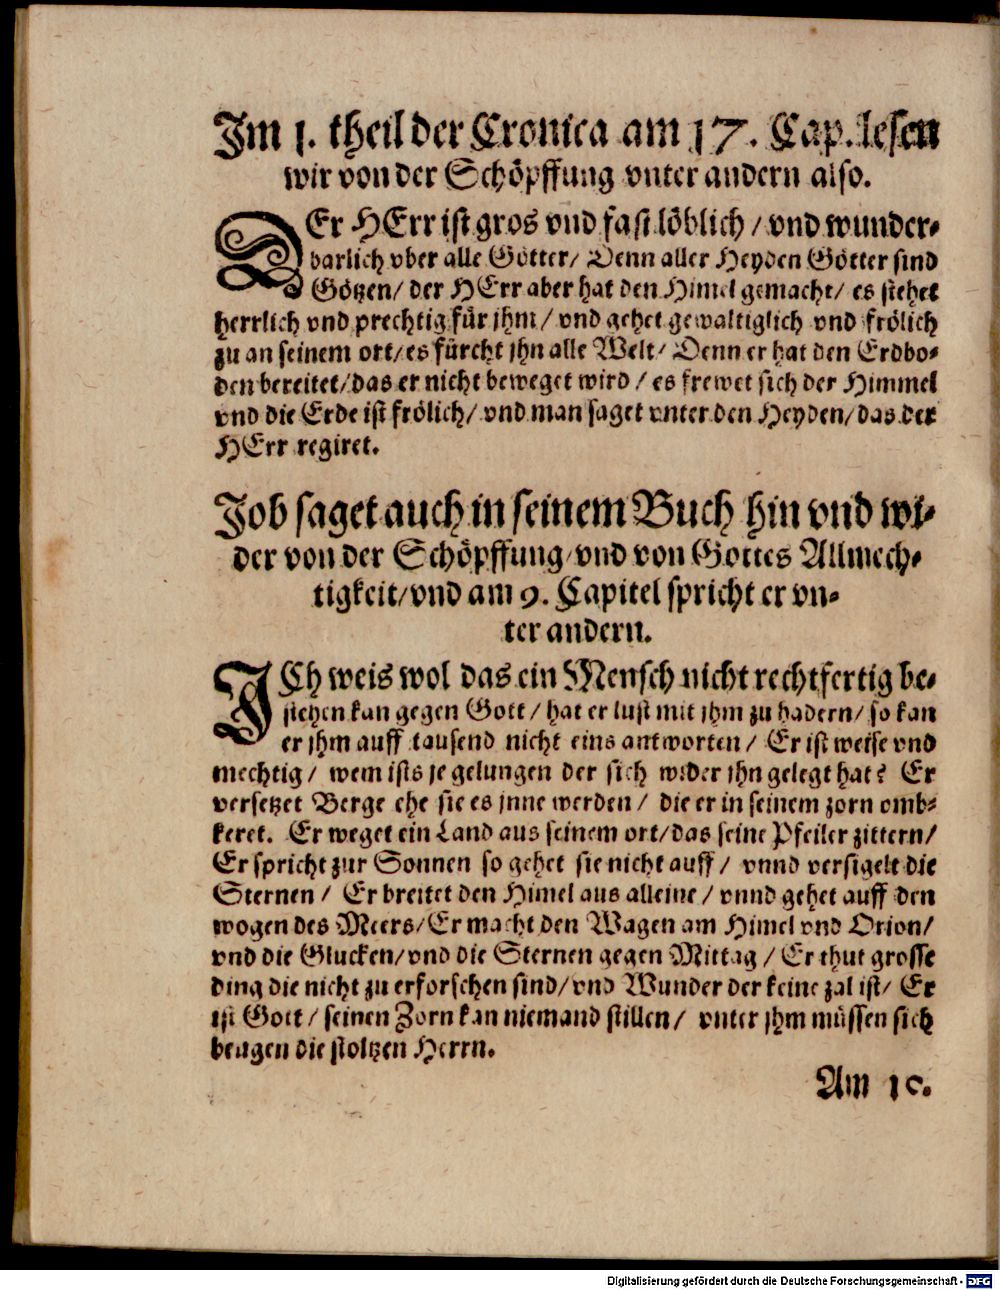 Im 1. theil der Cronica am 17. Cap. lesen
wir von der Schöpffung vnter andern also.
DEr HErr ist gros vnd fast löblich / vnd wunder-
barlich vber alle Götter / Denn aller Heyden Götter sind
Götzen / der HErr aber hat den Himel gemacht / es stehet
herrlich vnd prechtig für jhm / vnd gehet gewaltiglich vnd frölich
zu an seinem ort / es fürcht jhn alle Welt / Denn er hat den Erdbo-
den bereitet / das er nicht beweget wird / es frewet sich der Himmel
vnd die Erde ist frölich / vnd man saget vnter den Heyden / das der
HErr regiret.
Job saget auch in seinem Buch hin vnd wi-
der von der Schöpffung / vnd von Gottes Allmech-
tigkeit / vnd am 9. Capitel spricht er vn-
ter andern.
ICh weis wol das ein Mensch nicht rechtfertig be-
stehen kan gegen Gott / hat er lust mit jhm zu hadern / so kan
er jhm auff tausend nicht eins antworten / Er ist weise vnd
mechtig / wem ists je gelungen der sich wider jhn gelegt hat? Er
versetzet Berge ehe sie es jnne werden / die er in seinem zorn omb-
keret. Er weget ein Land aus seinem ort / das seine Pfeiler zittern /
Er spricht zur Sonnen so gehet sie nicht auff / vnnd versigelt die
Sternen / Er breitet den Himel aus alleine / vnnd gehet auff den
wogen des Meers / Er macht den Wagen am Himel vnd Orion /
vnd die Glucken / vnd die Sternen gegen Mittag / Er thut grosse
ding die nicht zu erforschen sind / vnd Wunder der keine zal ist / Er
ist Gott / seinen Zorn kan niemand stillen / vnter jhm müssen sich
beugen die stoltzen Herrn.
Am 10.
Digitalisierung gefördert durch die Deutsche Forschungsgemeinschaft - DFG